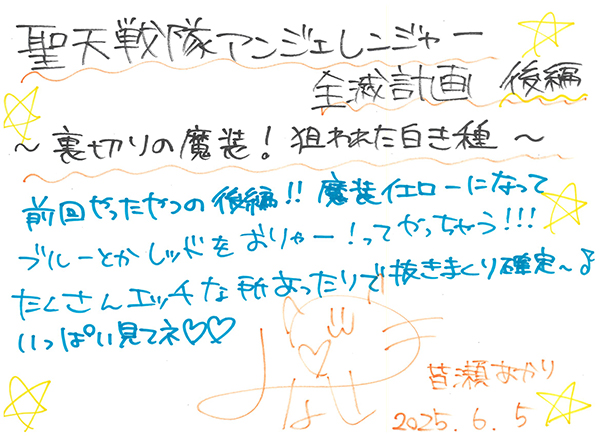 聖天戦隊アンジェレンジャー
全滅計画 後編
～裏切りの魔装！狙われた白き種～
前回やったやつの後編!! 魔装イエローになって
ブルーとかレッドをおりゃー！ってやっちゃう!!!
たくさんエッチな所あったりで抜きまくり確定～♪
いっぱい見てネ♡♡
皆瀬あかり
2025.6.5